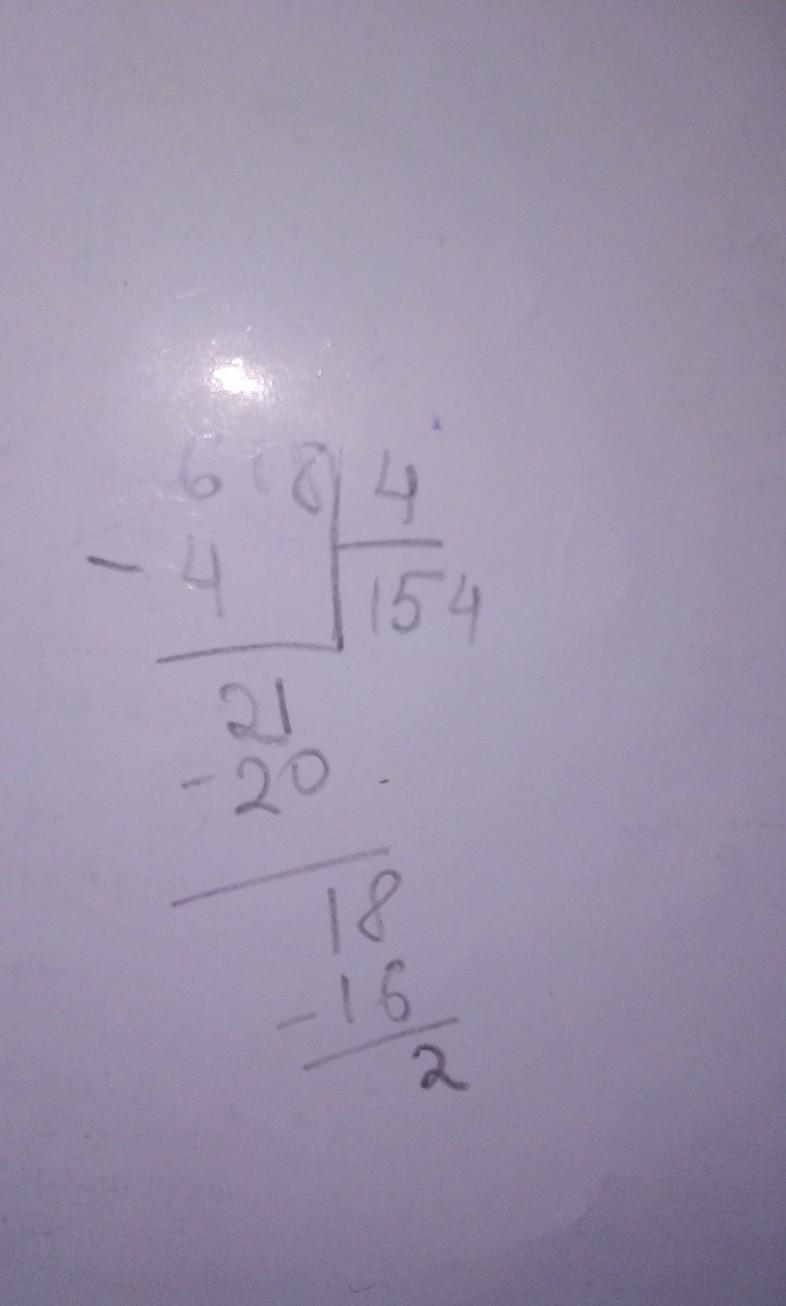 618 4
- 4 154
21
- 20
18
- 16
2